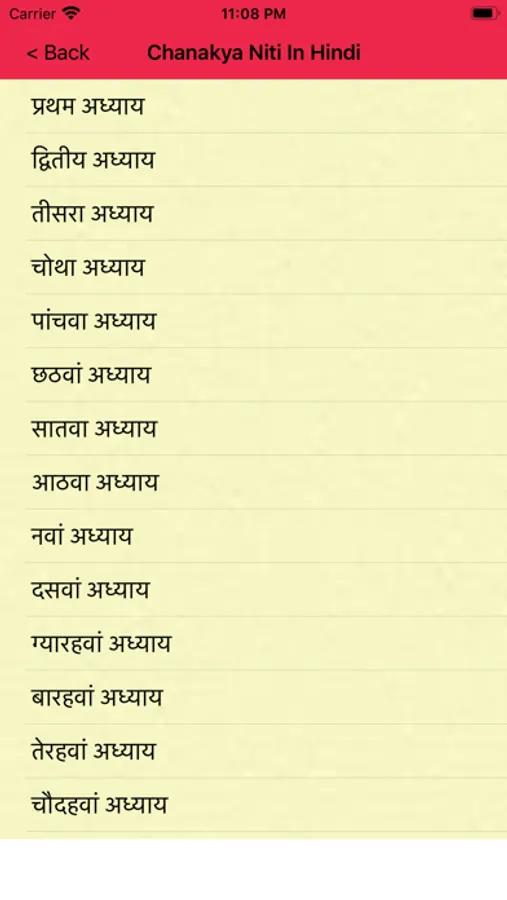 Carrier 11:08 PM
< Back Chanakya Niti In Hindi
प्रथम अध्याय
द्वितीय अध्याय
तीसरा अध्याय
चोथा अध्याय
पांचवा अध्याय
छठवां अध्याय
सातवा अध्याय
आठवा अध्याय
नवां अध्याय
दसवां अध्याय
ग्यारहवां अध्याय
बारहवां अध्याय
तेरहवां अध्याय
चौदहवां अध्याय